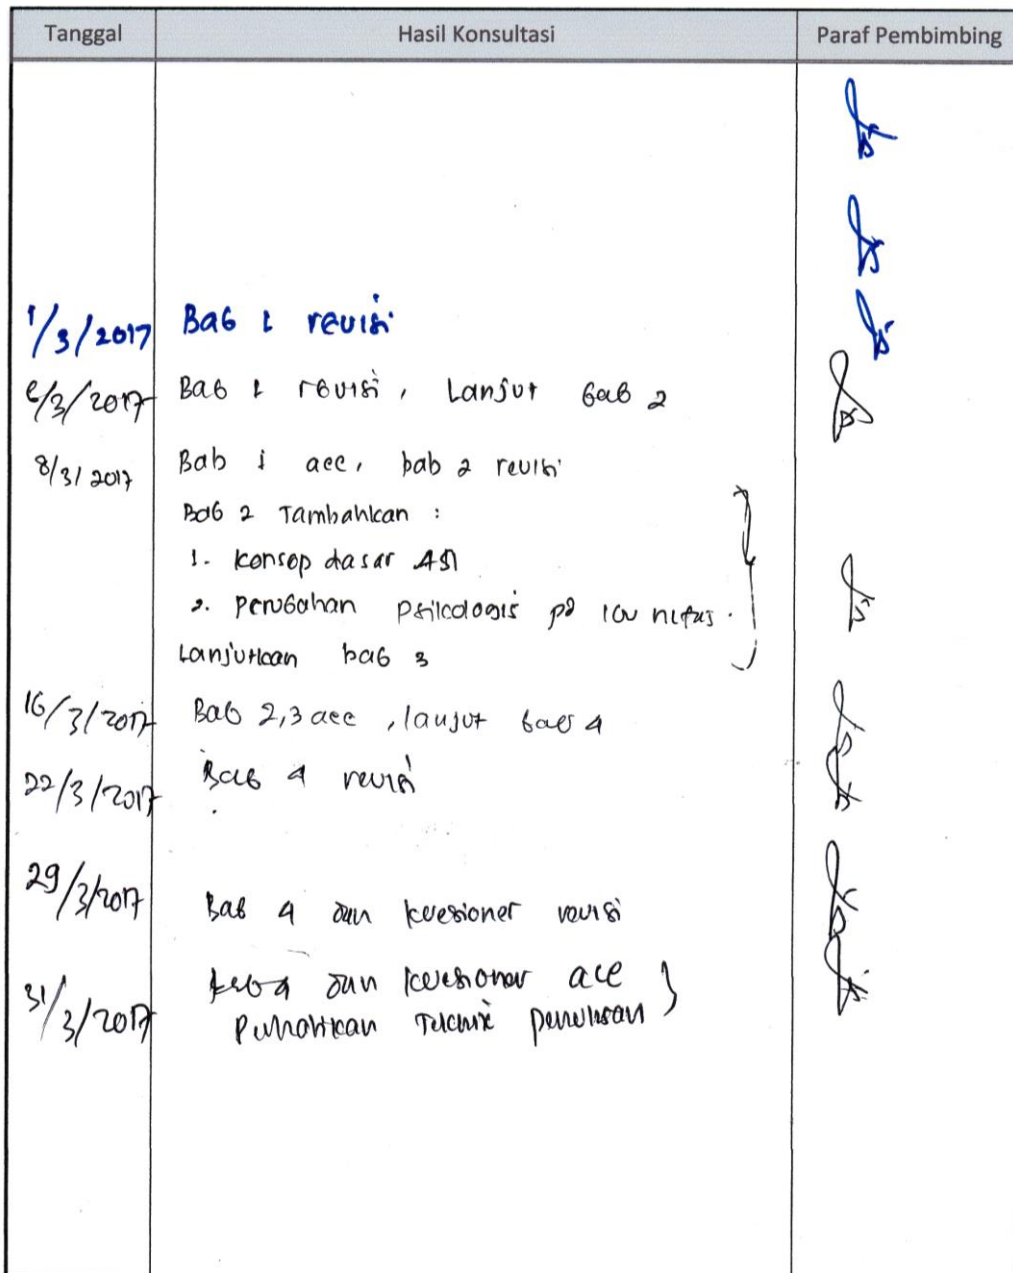 Tanggal Hasil Konsultasi Paraf Pembimbing
1/3/2017 Bab 1 revisi
6/3/2017 Bab 1 revisi, Lanjut bab 2
8/3/2017 Bab 1 acc, bab 2 revisi
Bab 2 Tambahkan :
1. Konsep dasar ASI
2. Perubahan Psikologis pd ibu nifas.
Lanjutkan bab 3
16/3/2017 Bab 2,3 acc, lanjut bab 4
22/3/2017 Bab 4 revisi
29/3/2017 Bab 4 dan kuesioner revisi
31/3/2017 bab 4 dan kuesioner acc
Perhatikan Teknik penulisan